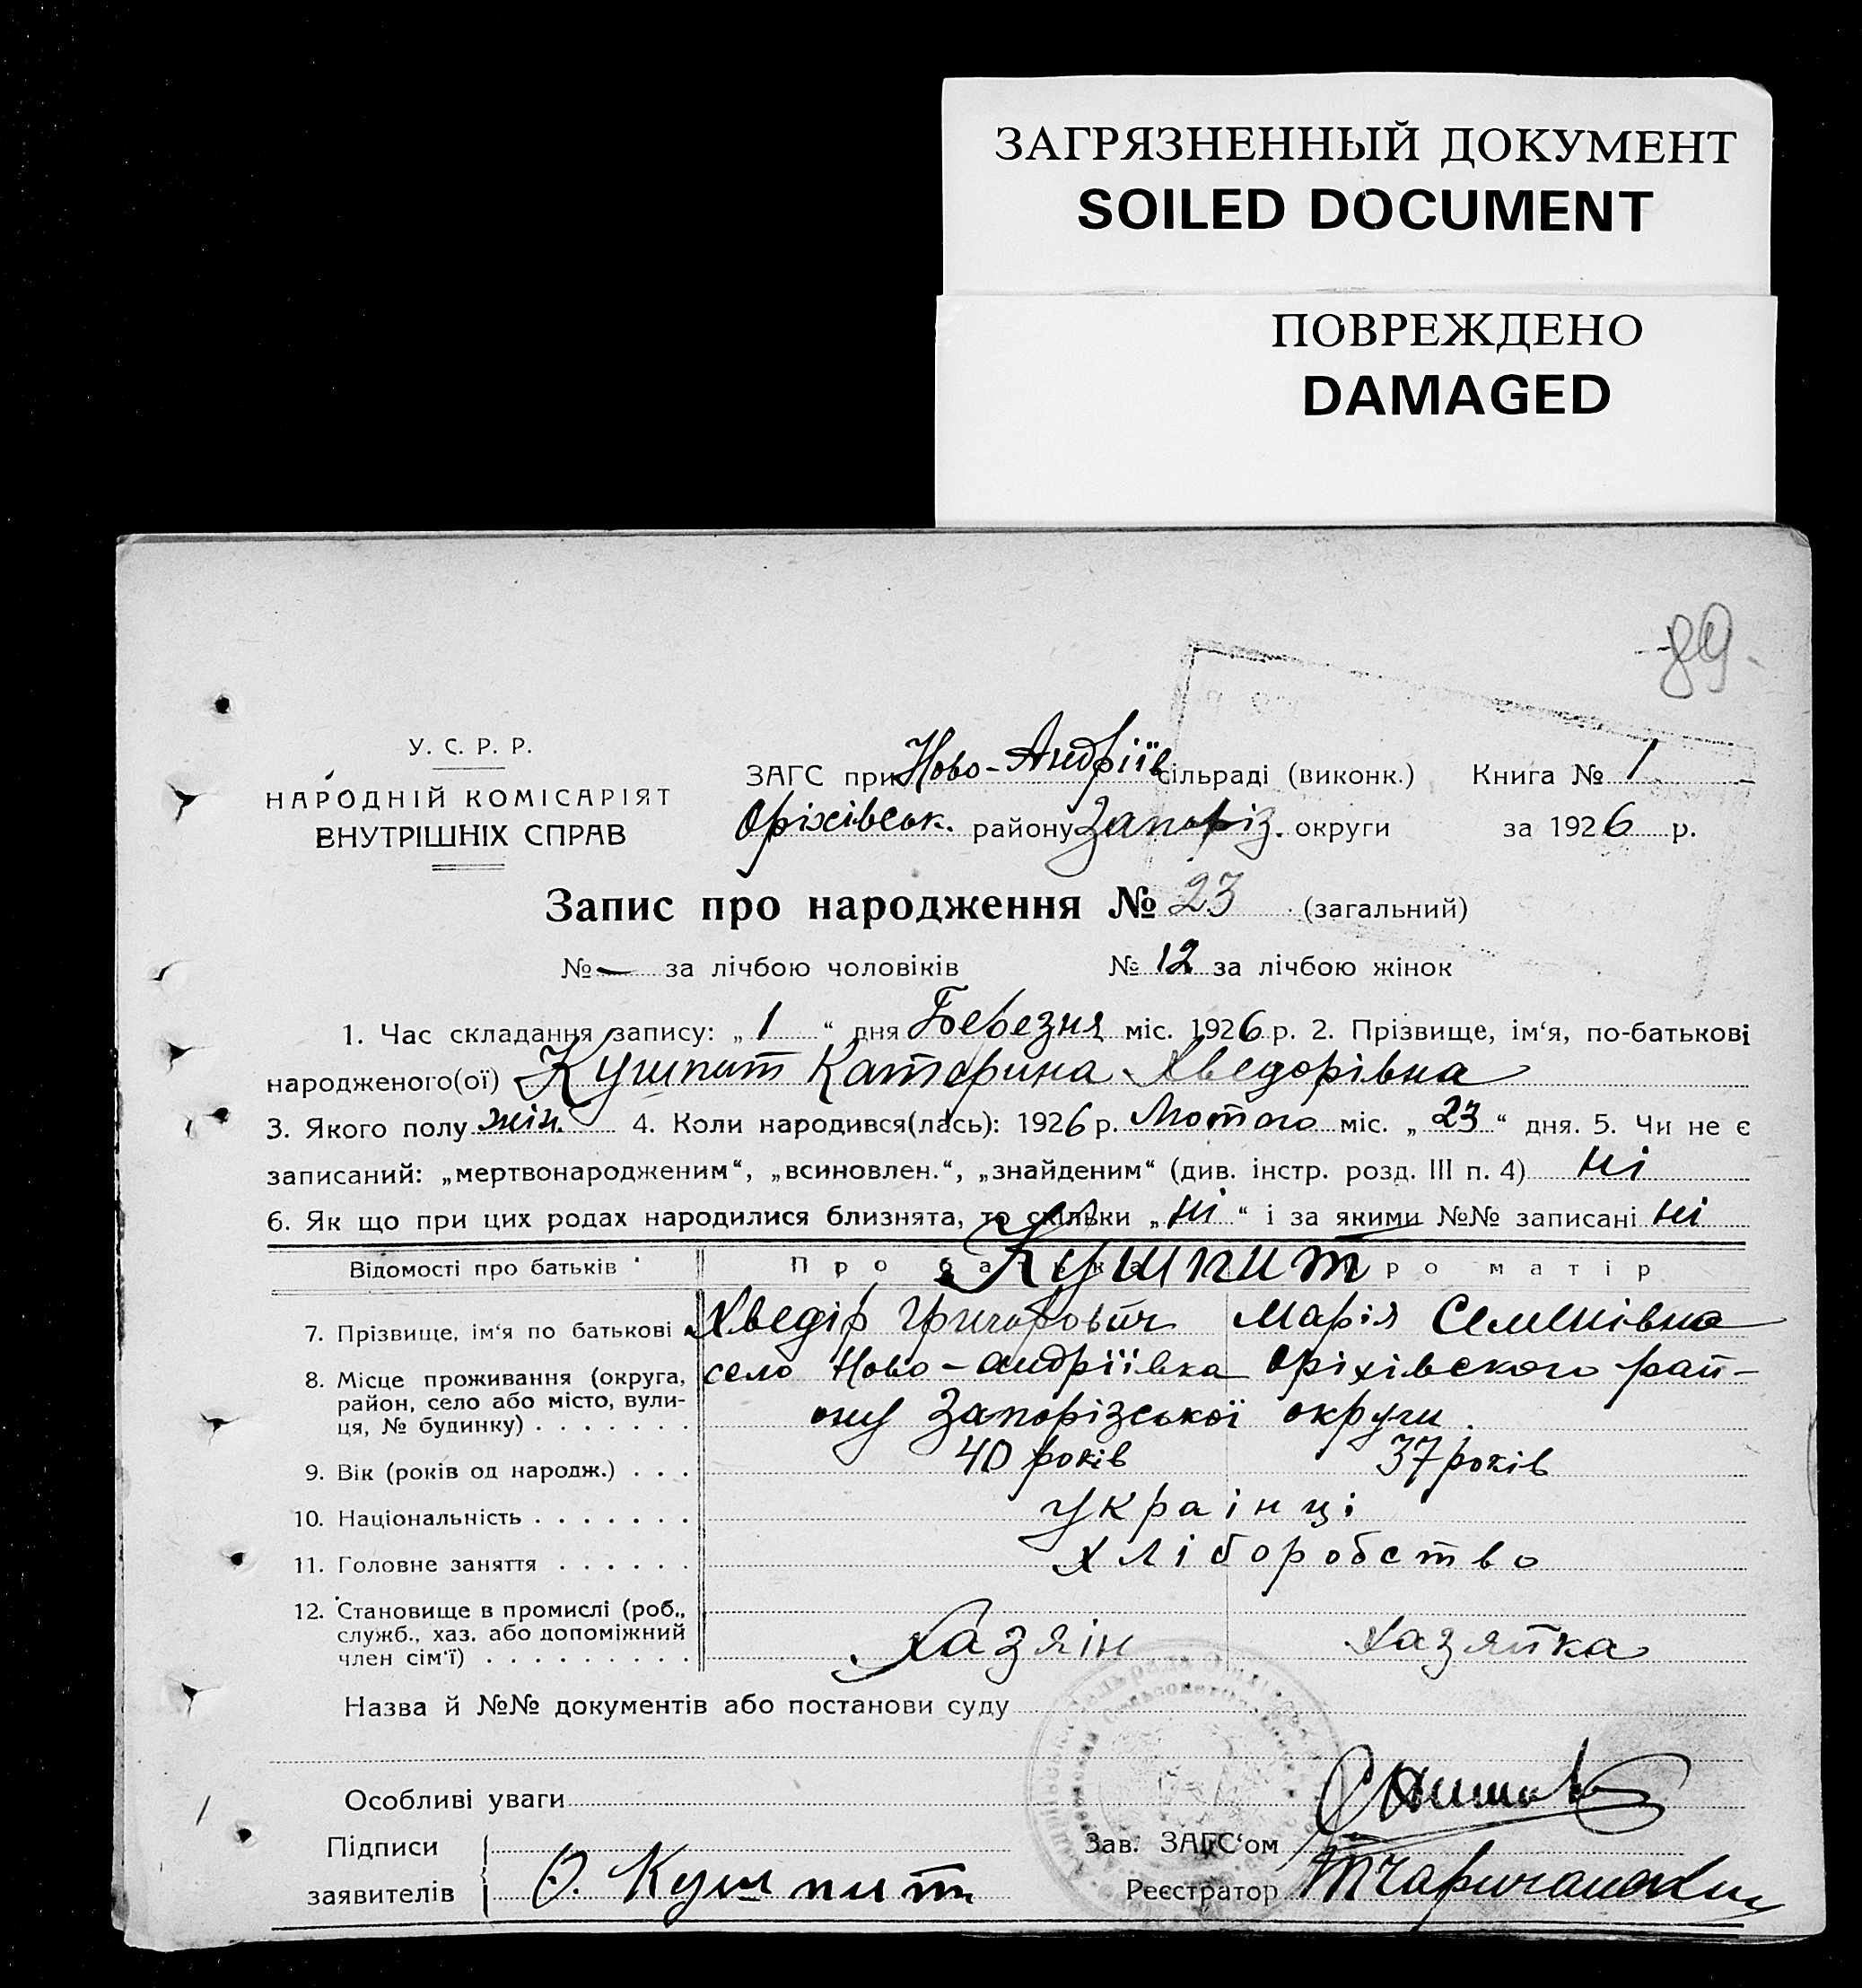 ЗАГРЯЗНЕННЫЙ ДОКУМЕНТ
SOILED DOCUMENT
ПОВРЕЖДЕНО
DAMAGED
89
У. С. Р. Р.
НАРОДНІЙ КОМІСАРІЯТ
ВНУТРІШНІХ СПРАВ
ЗАГС при Ново-Андріїв сільраді (виконк.) Книга № 1
Оріхівськ. району Запоріз. округи за 1926 р.
Запис про народження № 23 (загальний)
№ — за лічбою чоловіків № 12 за лічбою жінок
1. Час складання запису: „ 1 “ дня Березня міс. 1926 р. 2. Прізвище, ім‘я, по-батькові
народженого(ої) Кушпит Катерина Хведорівна
3. Якого полу жін. 4. Коли народився(лась): 1926 р. Лютого міс. „ 23 “ дня. 5. Чи не є
записаний: „мертвонародженим“, „всиновлен.“, „знайденим“ (див. інстр. розд. III п. 4) ні
6. Як що при цих родах народилися близнята, то скільки „ ні “ і за якими №№ записані ні
Відомості про батьків Про батька Про матір
Кушпит
7. Прізвище, ім‘я по батькові Хведір Григорович Марія Семенівна
8. Місце проживання (округа, село Ново-Андріївка Оріхівского рай-
район, село або місто, вули-
ця, № будинку) . . . . . . . ону Запорізської округи.
9. Вік (років од народж.) . . . 40 років 37 років
10. Національність . . . . . . . Українці
11. Головне заняття . . . . . . Хліборобство
12. Становище в промислі (роб.,
служб., хаз. або допоміжний Хазяін Хазяйка
член сім‘ї) . . . . . . . . .
Назва й №№ документів або постанови суду
Особливі уваги
Підписи Зав. ЗАГС‘ом
заявителів Ф. Кушпит Реєстратор